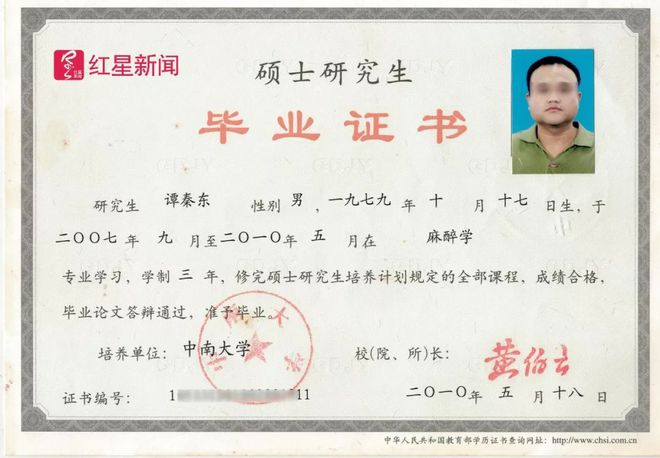 红星新闻
硕士研究生
毕业证书
研究生 谭秦东 性别 男 , 一九七九 年 十 月 十七 日生, 于
二〇〇七 年 九 月至 二〇一〇 年 五 月在 麻醉学
专业学习, 学制 三 年, 修完硕士研究生培养计划规定的全部课程, 成绩合格,
毕业论文答辩通过, 准予毕业。
培养单位: 中南大学 校(院、所)长: 黄伯云
证书编号: 1 11 二〇一〇 年 五 月 十八 日
中华人民共和国教育部学历证书查询网址: http://www.chsi.com.cn